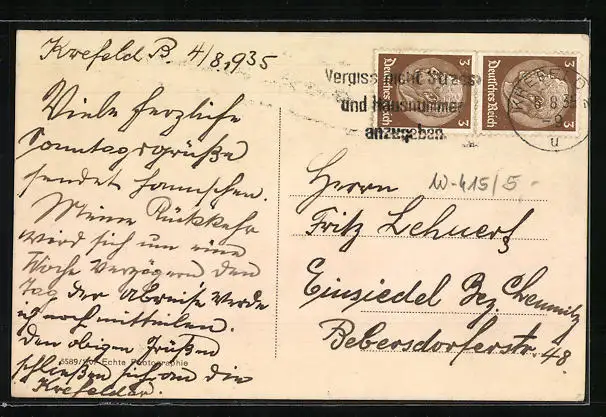 Krefeld B. 4/8.1935
Viele herzliche
Sonntagsgrüße
sendet Hannchen.
Meine Rückkehr
wird sich um eine
Woche verzögern den
Tag der Abreise werde
ich noch mitteilen.
Den obigen Grüßen
schließen sich an die
Krefelder.
Echte Photographie
Vergiss nicht Strasse
und Hausnummer
anzugeben
Deutsches Reich
3
3
Deutsches Reich
3
3
KREFELD
8.35
u
W-415/5,-
Herrn
Fritz Lehnert
Einsiedel Bez. Chemnitz
Bebersdorferstr. 48.